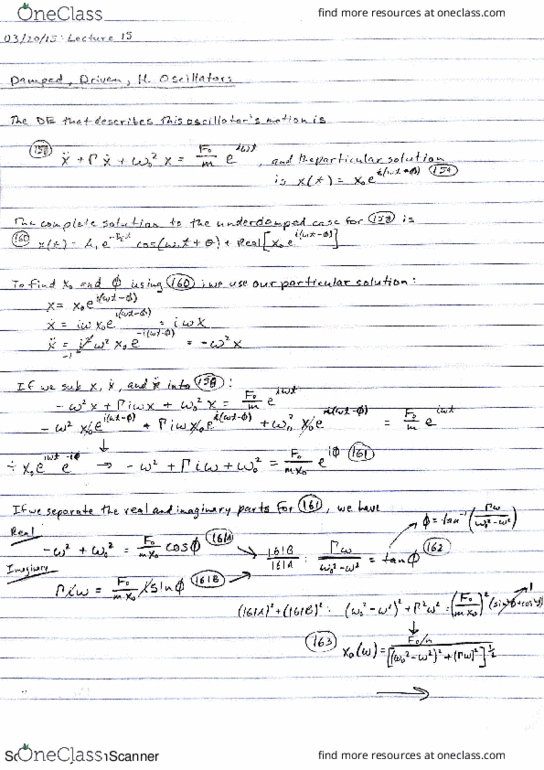 OneClass
find more resources at oneclass.com
03/20/15: Lecture 15
Damped, Driven, H. Oscillators
The DE that describes this oscillator's motion is
(158) ẍ + Γẋ + ω₀² x = F₀/m e^{iωt}, and the particular solution
is x(t) = x₀e^{i(ωt-φ)} (159)
The complete solution to the underdamped case for (158) is
(160) x(t) = A₁ e^{-Γ/2 t} cos(ω₁t + θ) + Real[x₀e^{i(ωt-φ)}]
To find x₀ and φ using (160), we use our particular solution:
x = x₀e^{i(ωt-φ)}
ẋ = iωx₀e^{i(ωt-φ)} = iωx
ẍ = i²ω²x₀e^{i(ωt-φ)} = -ω²x
-1
If we sub x, ẋ, and ẍ into (158):
-ω²x + Γiωx + ω₀²x = F₀/m e^{iωt}
-ω²x₀e^{i(ωt-φ)} + Γiωx₀e^{i(ωt-φ)} + ω₀²x₀e^{i(ωt-φ)} = F₀/m e^{iωt}
÷ x₀e^{iωt}e^{-iφ} → -ω² + Γiω + ω₀² = F₀/mx₀ e^{iφ} (161)
If we separate the real and imaginary parts for (161), we have
Real
-ω² + ω₀² = F₀/mx₀ cosφ (161A)
Imaginary
Γiω = F₀/mx₀ i sinφ (161B)
161B/161A : Γω/ω₀²-ω² = tanφ (162)
φ = tan⁻¹(Γω/ω₀²-ω²)
(161A)² + (161B)² : (ω₀²-ω²)² + Γ²ω² = (F₀/mx₀)² (sin²φ+cos²φ) 1
(163) x₀(ω) = F₀/m / [(ω₀²-ω²)² + (Γω)²]^{1/2}
OneClass
Scanner
find more resources at oneclass.com